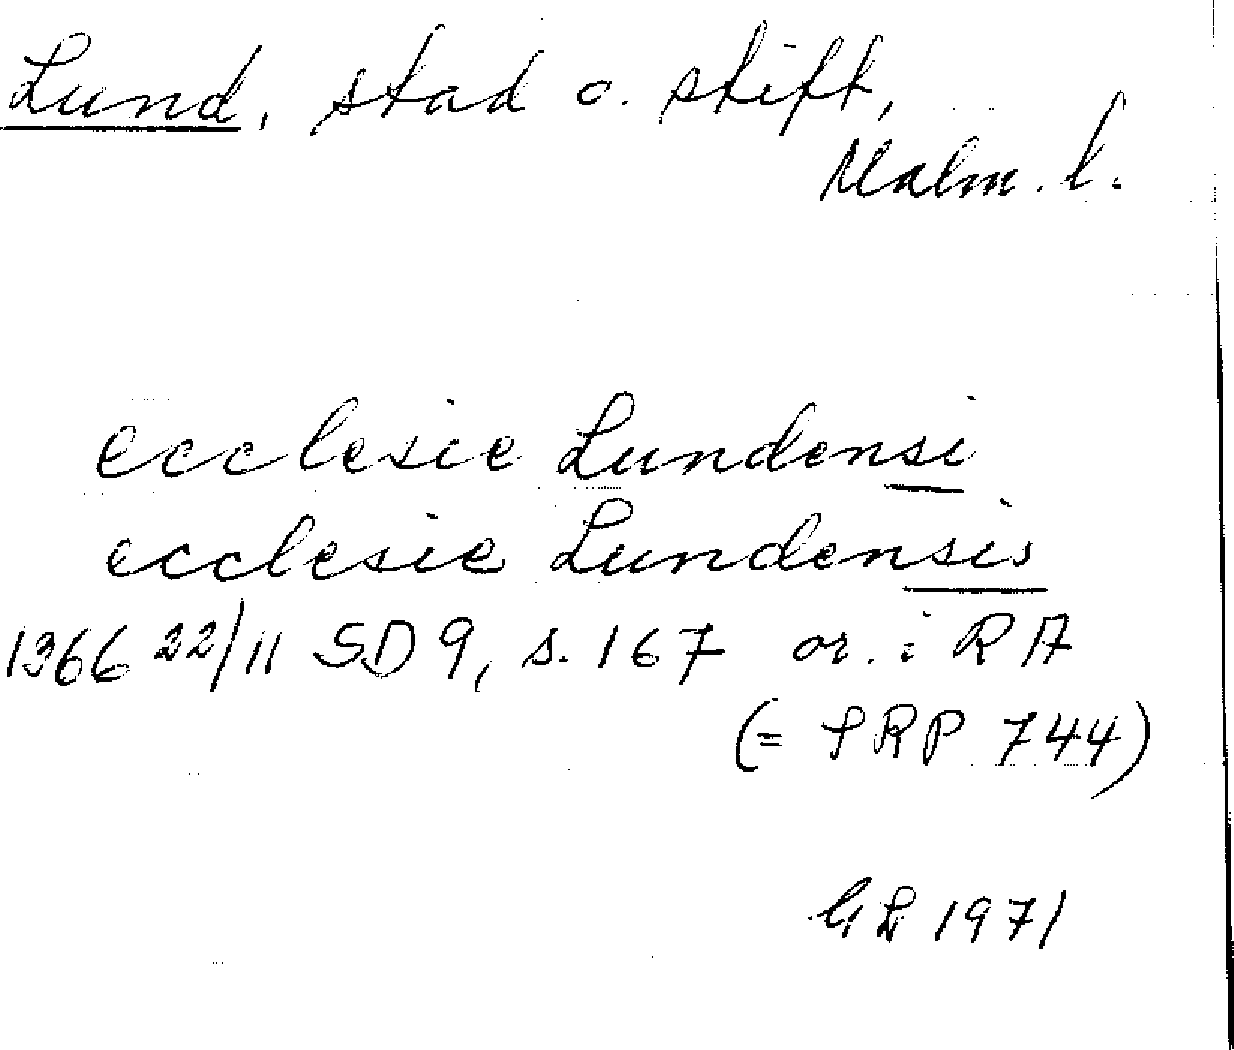 Lund, stad o. stift,
Malm. l.
ecclesie Lundensi
ecclesie Lundensis
1366 22/11 SD 9, s. 167 or. i RA
(= SRP 744)
GL 1971